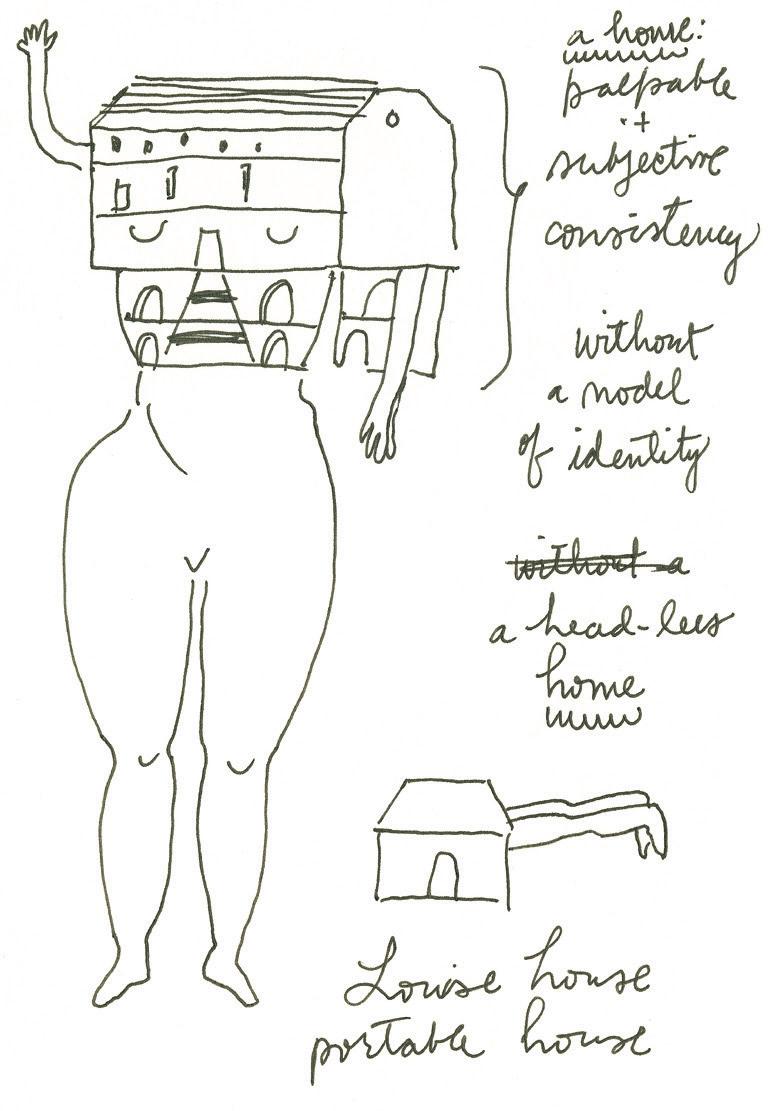 a house:
palpable
+
subjective
consistency
without
a model
of identity
without a
a head-less
home
Louise house
portable house